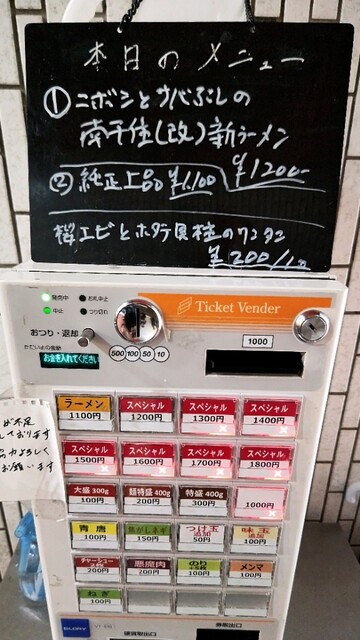 本日のメニュー
① ニボシとサバぶしの
南千住(改)新ラーメン
¥1200-
② 純正上品 ¥1,100
桜エビとホタテ貝柱のワンタン
¥200/1コ
Ticket Vender
発売中
お札中止
中止
つり切れ
おつり・返却
お金を入れてください
500 100 50 10
1000
が不足
しております
よろしく
お願います
ラーメン 1100円
スペシャル 1200円
スペシャル 1300円
スペシャル 1400円
スペシャル 1500円
スペシャル 1600円
スペシャル 1700円
スペシャル 1800円
大盛 300g 100円
麺特盛 400g 200円
特盛 400g 300円
1000円
青唐 100円
焦がしネギ 150円
つけ玉 追加 50円
味玉 追加 100円
チャーシュー 200円
悪魔肉 200円
のり 100円
メンマ 100円
ねぎ 100円
硬貨取出口
券取出口